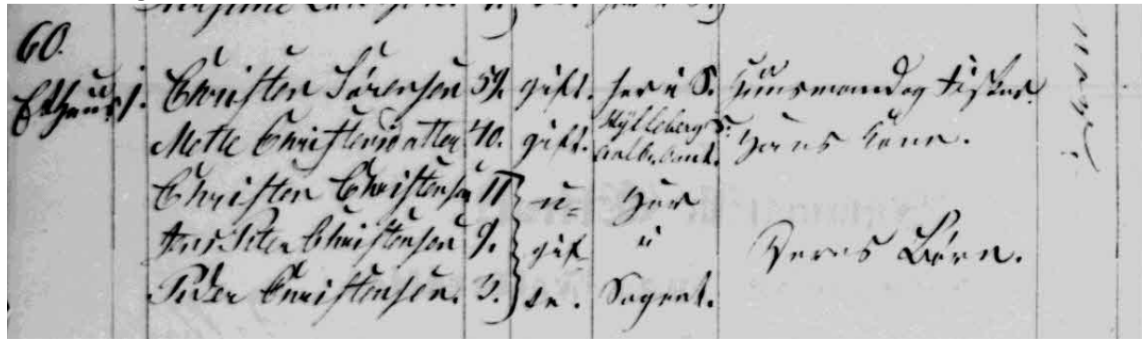 60.
Et Huus. 1. Christen Sørensen 59. gift. her i S. Huusmand og Fisker.
Mette Christensdatter 40. gift. S. Aalb. Amt. Hans Kone.
Christen Christensen 11 u- Her
Christensen 9. gif i Deres Børn.
Peder Christensen. 3. te. Sognet.